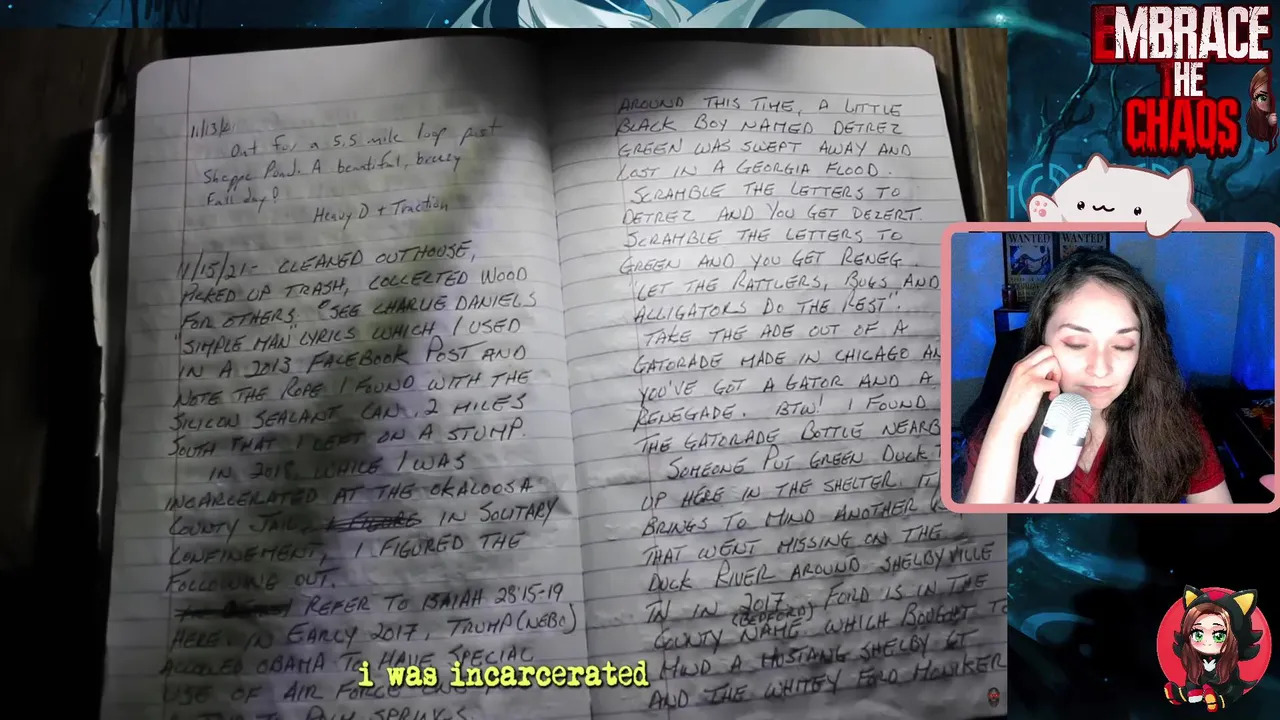 EMBRACE
THE
CHAOS
WANTED WANTED
11/13/21
Out for a 5.5 mile loop past
Shappe Pond. A beautiful, breezy
Fall day!
Heavy D + Traction
11/15/21 - CLEANED OUTHOUSE,
PICKED UP TRASH, COLLECTED WOOD
FOR OTHERS. SEE CHARLIE DANIELS
"SIMPLE MAN" LYRICS WHICH I USED
IN A 2013 FACEBOOK POST AND
NOTE THE ROPE I FOUND WITH THE
SILICON SEALANT CAN. 2 MILES
SOUTH THAT I LEFT ON A STUMP.
IN 2018, WHILE I WAS
INCARCERATED AT THE OKALOOSA
COUNTY JAIL, I FIGURE IN SOLITARY
CONFINEMENT, I FIGURED THE
FOLLOWING OUT.
REFER TO ISAIAH 28:15-19
HERE. IN EARLY 2017, TRUMP (NEBO)
ALLOWED OBAMA TO HAVE SPECIAL
USE OF AIR FORCE
PALM SPRINGS.
AROUND THIS TIME, A LITTLE
BLACK BOY NAMED DETREZ
GREEN WAS SWEPT AWAY AND
LOST IN A GEORGIA FLOOD.
SCRAMBLE THE LETTERS TO
DETREZ AND YOU GET DEZERT.
SCRAMBLE THE LETTERS TO
GREEN AND YOU GET RENEG.
"LET THE RATTLERS, BUGS AND
ALLIGATORS DO THE REST".
TAKE THE ADE OUT OF A
GATORADE MADE IN CHICAGO AN
YOU'VE GOT A GATOR AND A
RENEGADE. BTW! I FOUND
THE GATORADE BOTTLE NEARB
SOMEONE PUT GREEN DUCK T
UP HERE IN THE SHELTER. IT
BRINGS TO MIND ANOTHER
THAT WENT MISSING ON THE
DUCK RIVER AROUND SHELBYVILLE
TN IN 2017. FORD IS IN THE
(BEDFORD)
COUNTY NAME WHICH BOUGHT TO
MIND A MUSTANG SHELBY GT
AND THE WHITEY FORD MONIKER
i was incarcerated